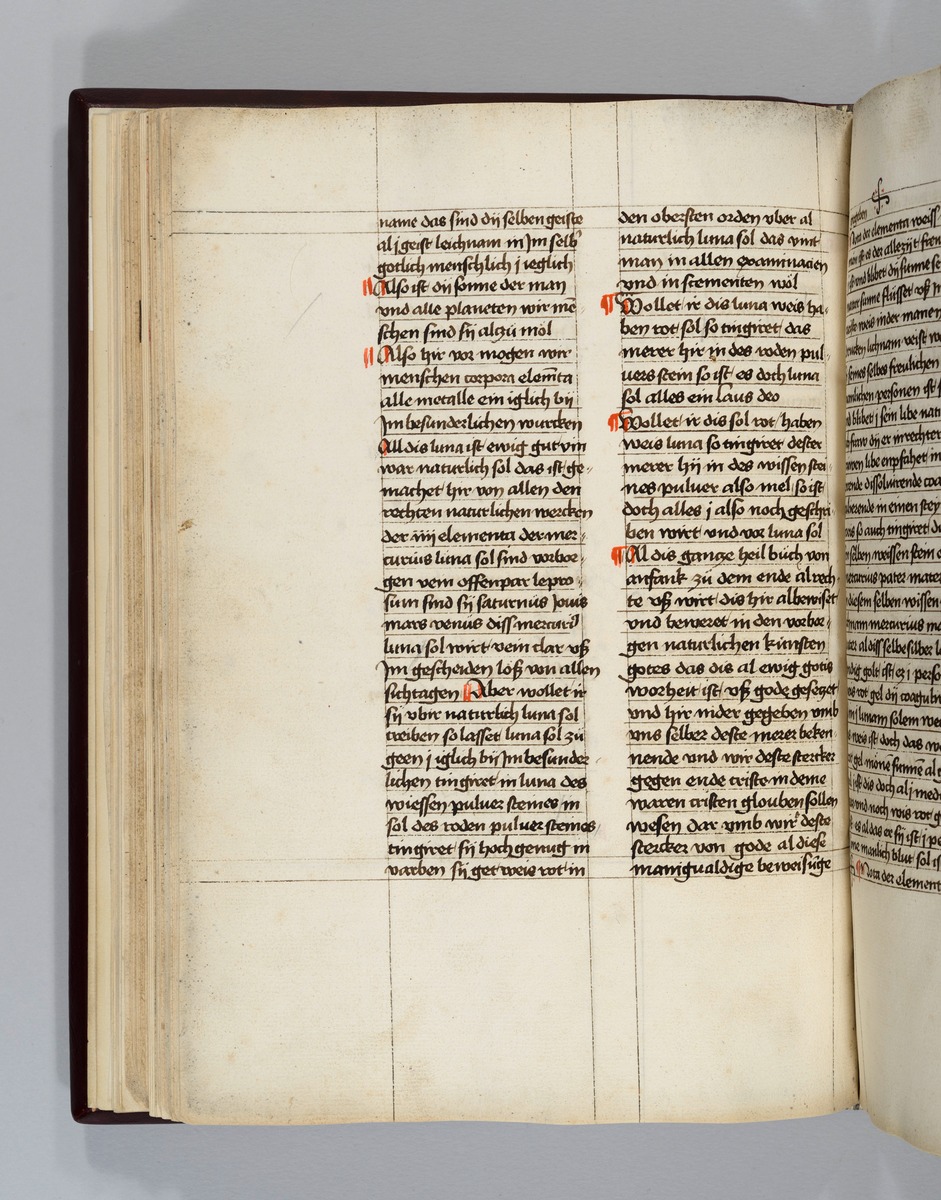 name das sind dÿ selben geiste
al j geist leichnam in Jm selb
gotlich menschlich j ieglich
Also ist dÿ sonne der man
vnd alle planeten wir me
schen sind sÿ alczu mol
Also hir vor mogen wir
menschen corpora elemta
alle metalle ein iglich bÿ
Jm besunderlichen wurcken
All dis luna ist ewig gut vin
war naturlich sol das ist ge
machet hir von allen den
rechten naturlichen wercken
der iiij elementa der mer
curius luna sol sind vorbor
gen vein offenpar lepro
sum sind sÿ saturnus Jouis
mars venus diss mercurÿ
luna sol wirt vein clar vß
Jm gescheiden löß von allen
sichtagen Aber wollet ir
sÿ vbir naturlich luna sol
treiben so lasset luna sol zu
geen j iglich bÿ Jm besunder
lichen tingiret in luna des
wiessen puluer steines in
sol des roden puluer steines
tingiret sÿ hoch genug in
varben sÿ get weis rot in
den obersten orden vber al
naturlich luna sol das vint
man in allen examinacien
vnd in scementen wöl
Wollet ir dis luna weis ha
ben rot sol so tingiret das
merer hir in des roden pul
uers stein so ist es doch luna
sol alles ein laus deo
Wollet ir dis sol rot haben
weis luna so tingiret dester
merer hÿ in des wissen stei
nes puluer also mel so ist
doch alles j also noch geschri
ben wirt vnd vor luna sol
All dis gancze heil buch von
anfank zu dem ende al rech
te vß wirt dis hir al bewiset
vnd beweret in den vorbor
gen naturlichen kunsten
gotes das dis al ewig gotis
worheit ist vß gode geseczet
vnd hir nider gegeben vmb
vns selber deste merer beken
nende vnd wir deste stercker
gegen ende cristo in deme
waren cristen glouben sollen
wesen dar vmb wir deste
stercker von gode al diese
manigualdige beweisuge